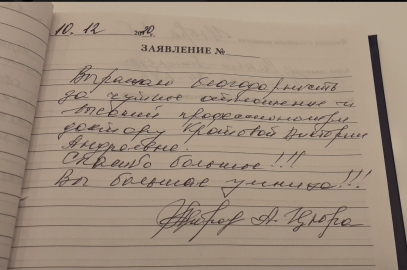 10. 12 2020.
ЗАЯВЛЕНИЕ №
Выражаю благодарность
за чуткое отношение и
высокий профессионализм
доктору Кротовой Виктории
Андреевне.
Спасибо большое!!!
Вы большая умница!!!
А. Цюра